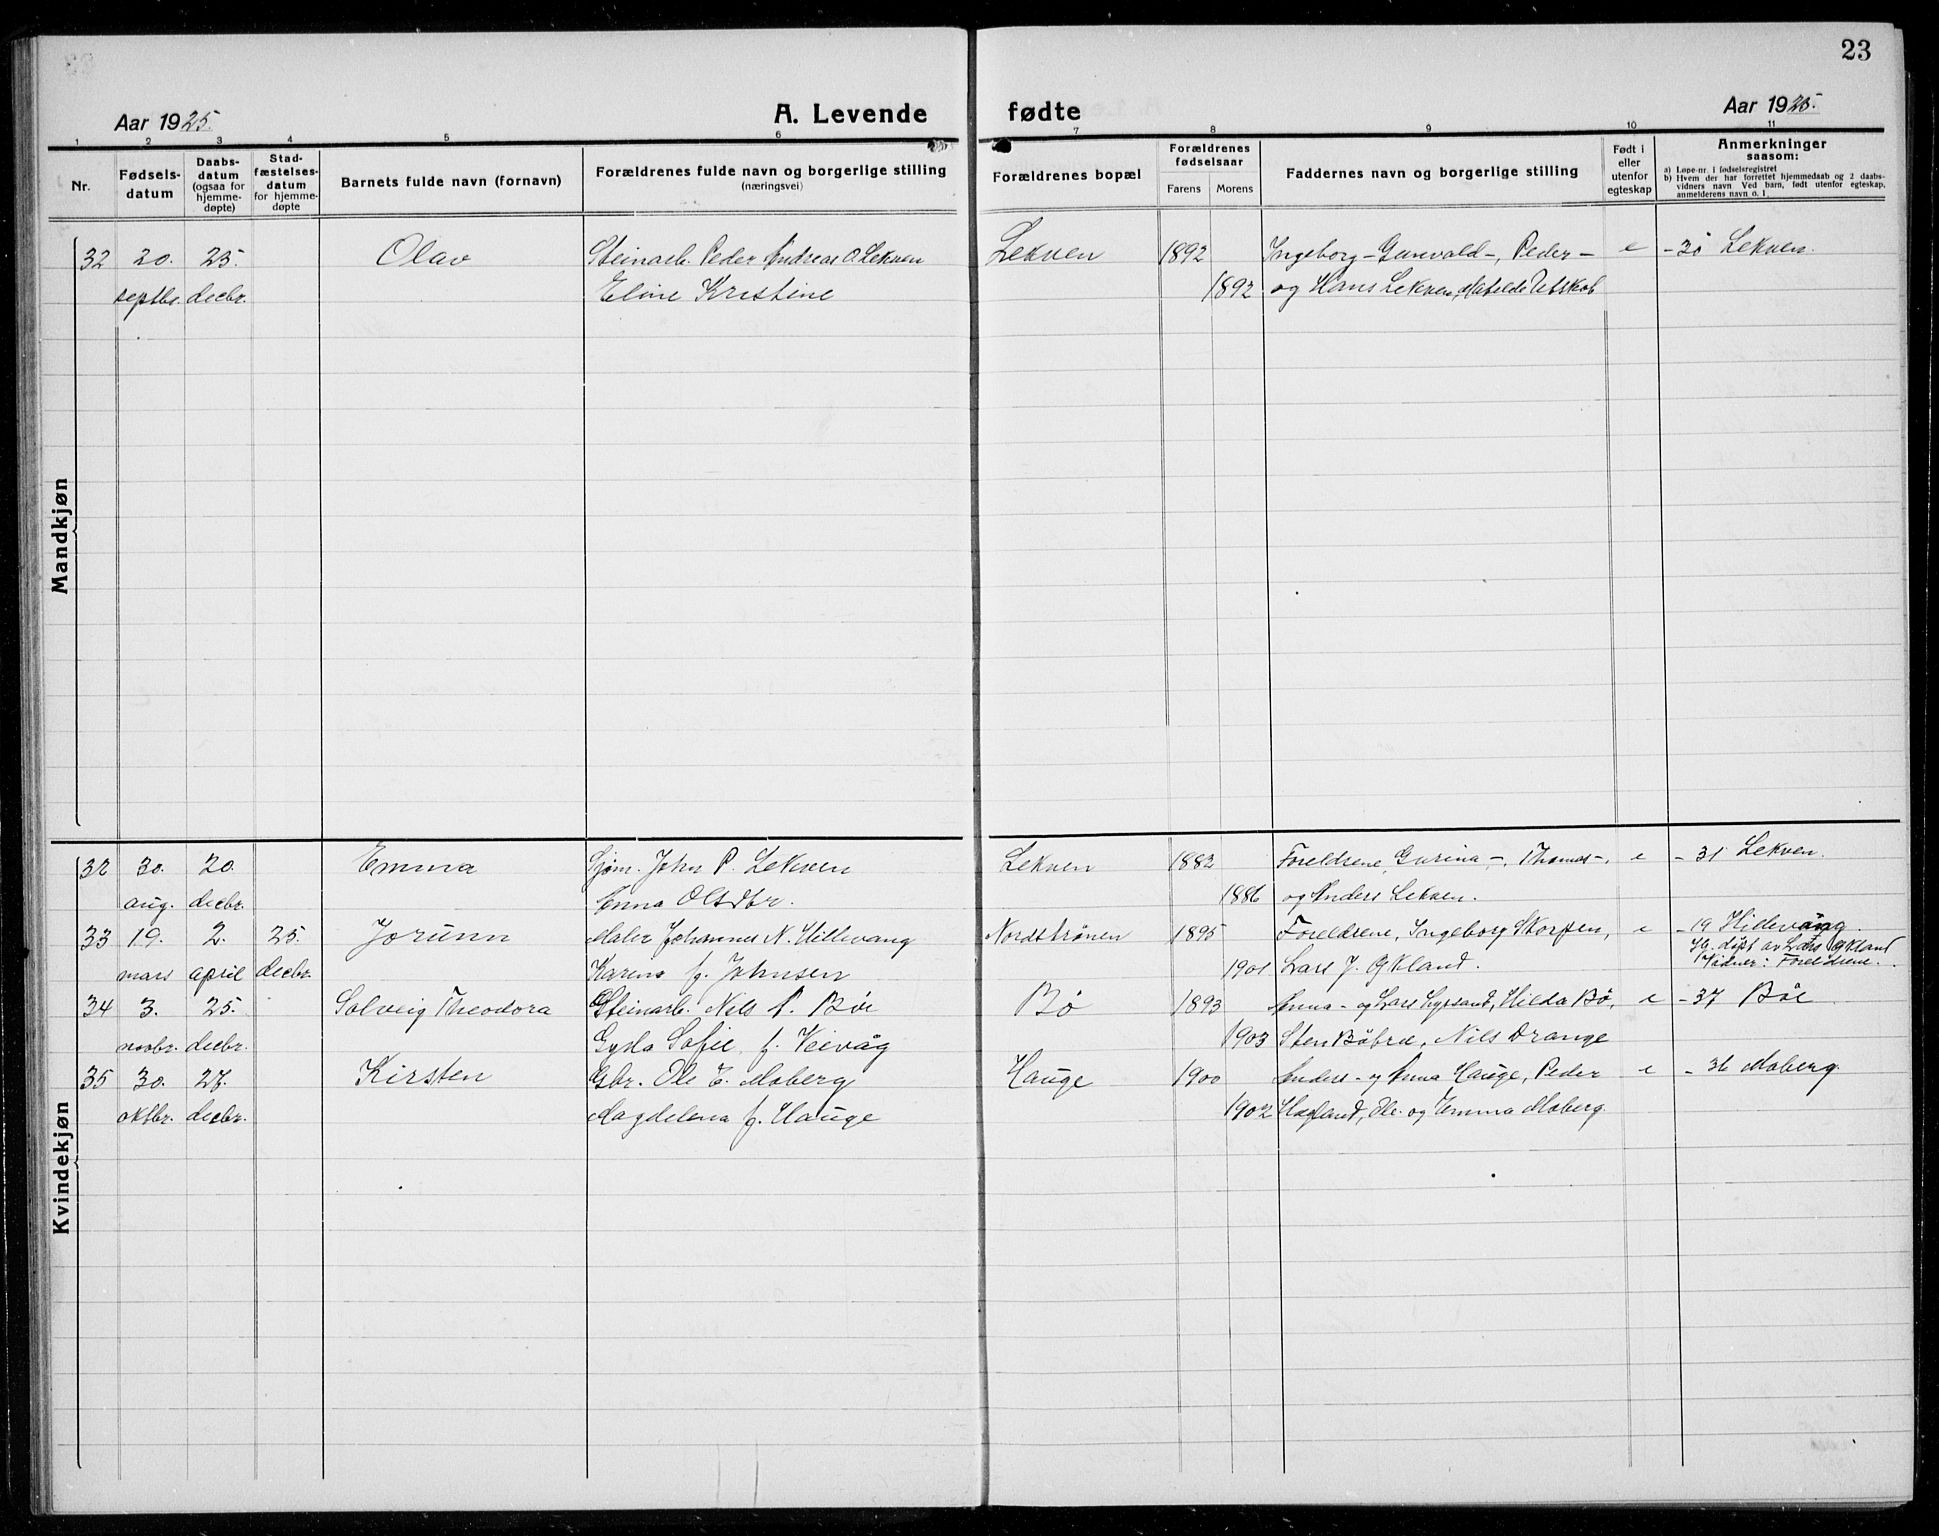 23
Aar 1925.
A. Levende fødte
Aar 1925.
1 2 3 4 5 6 7 8 9 10 11
Nr.
Fødselsdatum
Daabsdatum (ogsaa for hjemmedøpte)
Stadfæstelsesdatum for hjemmedøpte
Barnets fulde navn (fornavn)
Forældrenes fulde navn og borgerlige stilling
(næringsvei)
Forældrenes bopæl
Forældrenes fødselsaar
Farens Morens
Faddernes navn og borgerlige stilling
Født i eller utenfor egteskap
Anmerkninger
saasom:
a) Løpe-nr. i fødselsregistret
b) Hvem der har forrettet hjemmedaab og 2 daabsvidners navn Ved barn, født utenfor egteskap, anmelderens navn o. l
Mandkjøn
32 20. 25. Olav Steinarb. Peder Andreas O. Lekven Lekven 1892 Ingeborg - Gunvald -, Peder - e - 30 Lekven.
septbr. decbr. Eline Kristine 1892 og Hans Lekven, Matilde Utskot
Kvindekjøn
32 30. 20. Emma Sjøm. John P. Lekven Lekven 1882 Foreldrene, Gurina -, Thomas -, e - 31 Lekven.
aug. decbr. Enna Olsdtr. 1886 og Anders Lekven.
33 19. 2. 25. Jorunn Maler Johannes N. Hillevang Nordstrønen 1895 Foreldrene, Ingeborg Storpen, e - 19 Hillevang.
mars april decbr. Karens f. Johnsen 1901 Lars J. Økland. Hj. døpt av Lars Økland
Vidner: Foreldrene.
34 3. 25. Solveig Theodora Steinarb. Nils A. Bøe Bø 1893 Anna - og Lars Lyssand, Hilda Bø, e - 37 Bøe
novbr. decbr. Gyda Sofie f. Veivåg 1903 Sten Bøbræ, Nils Drange
35 30. 27. Kirsten Gbr. Ole E. Moberg Hauge 1900 Anders - og Anna Hauge, Peder e - 36 Moberg.
oktbr. decbr. Magdelena f. Hauge 1902 Hagland, Ole og Emma Moberg.